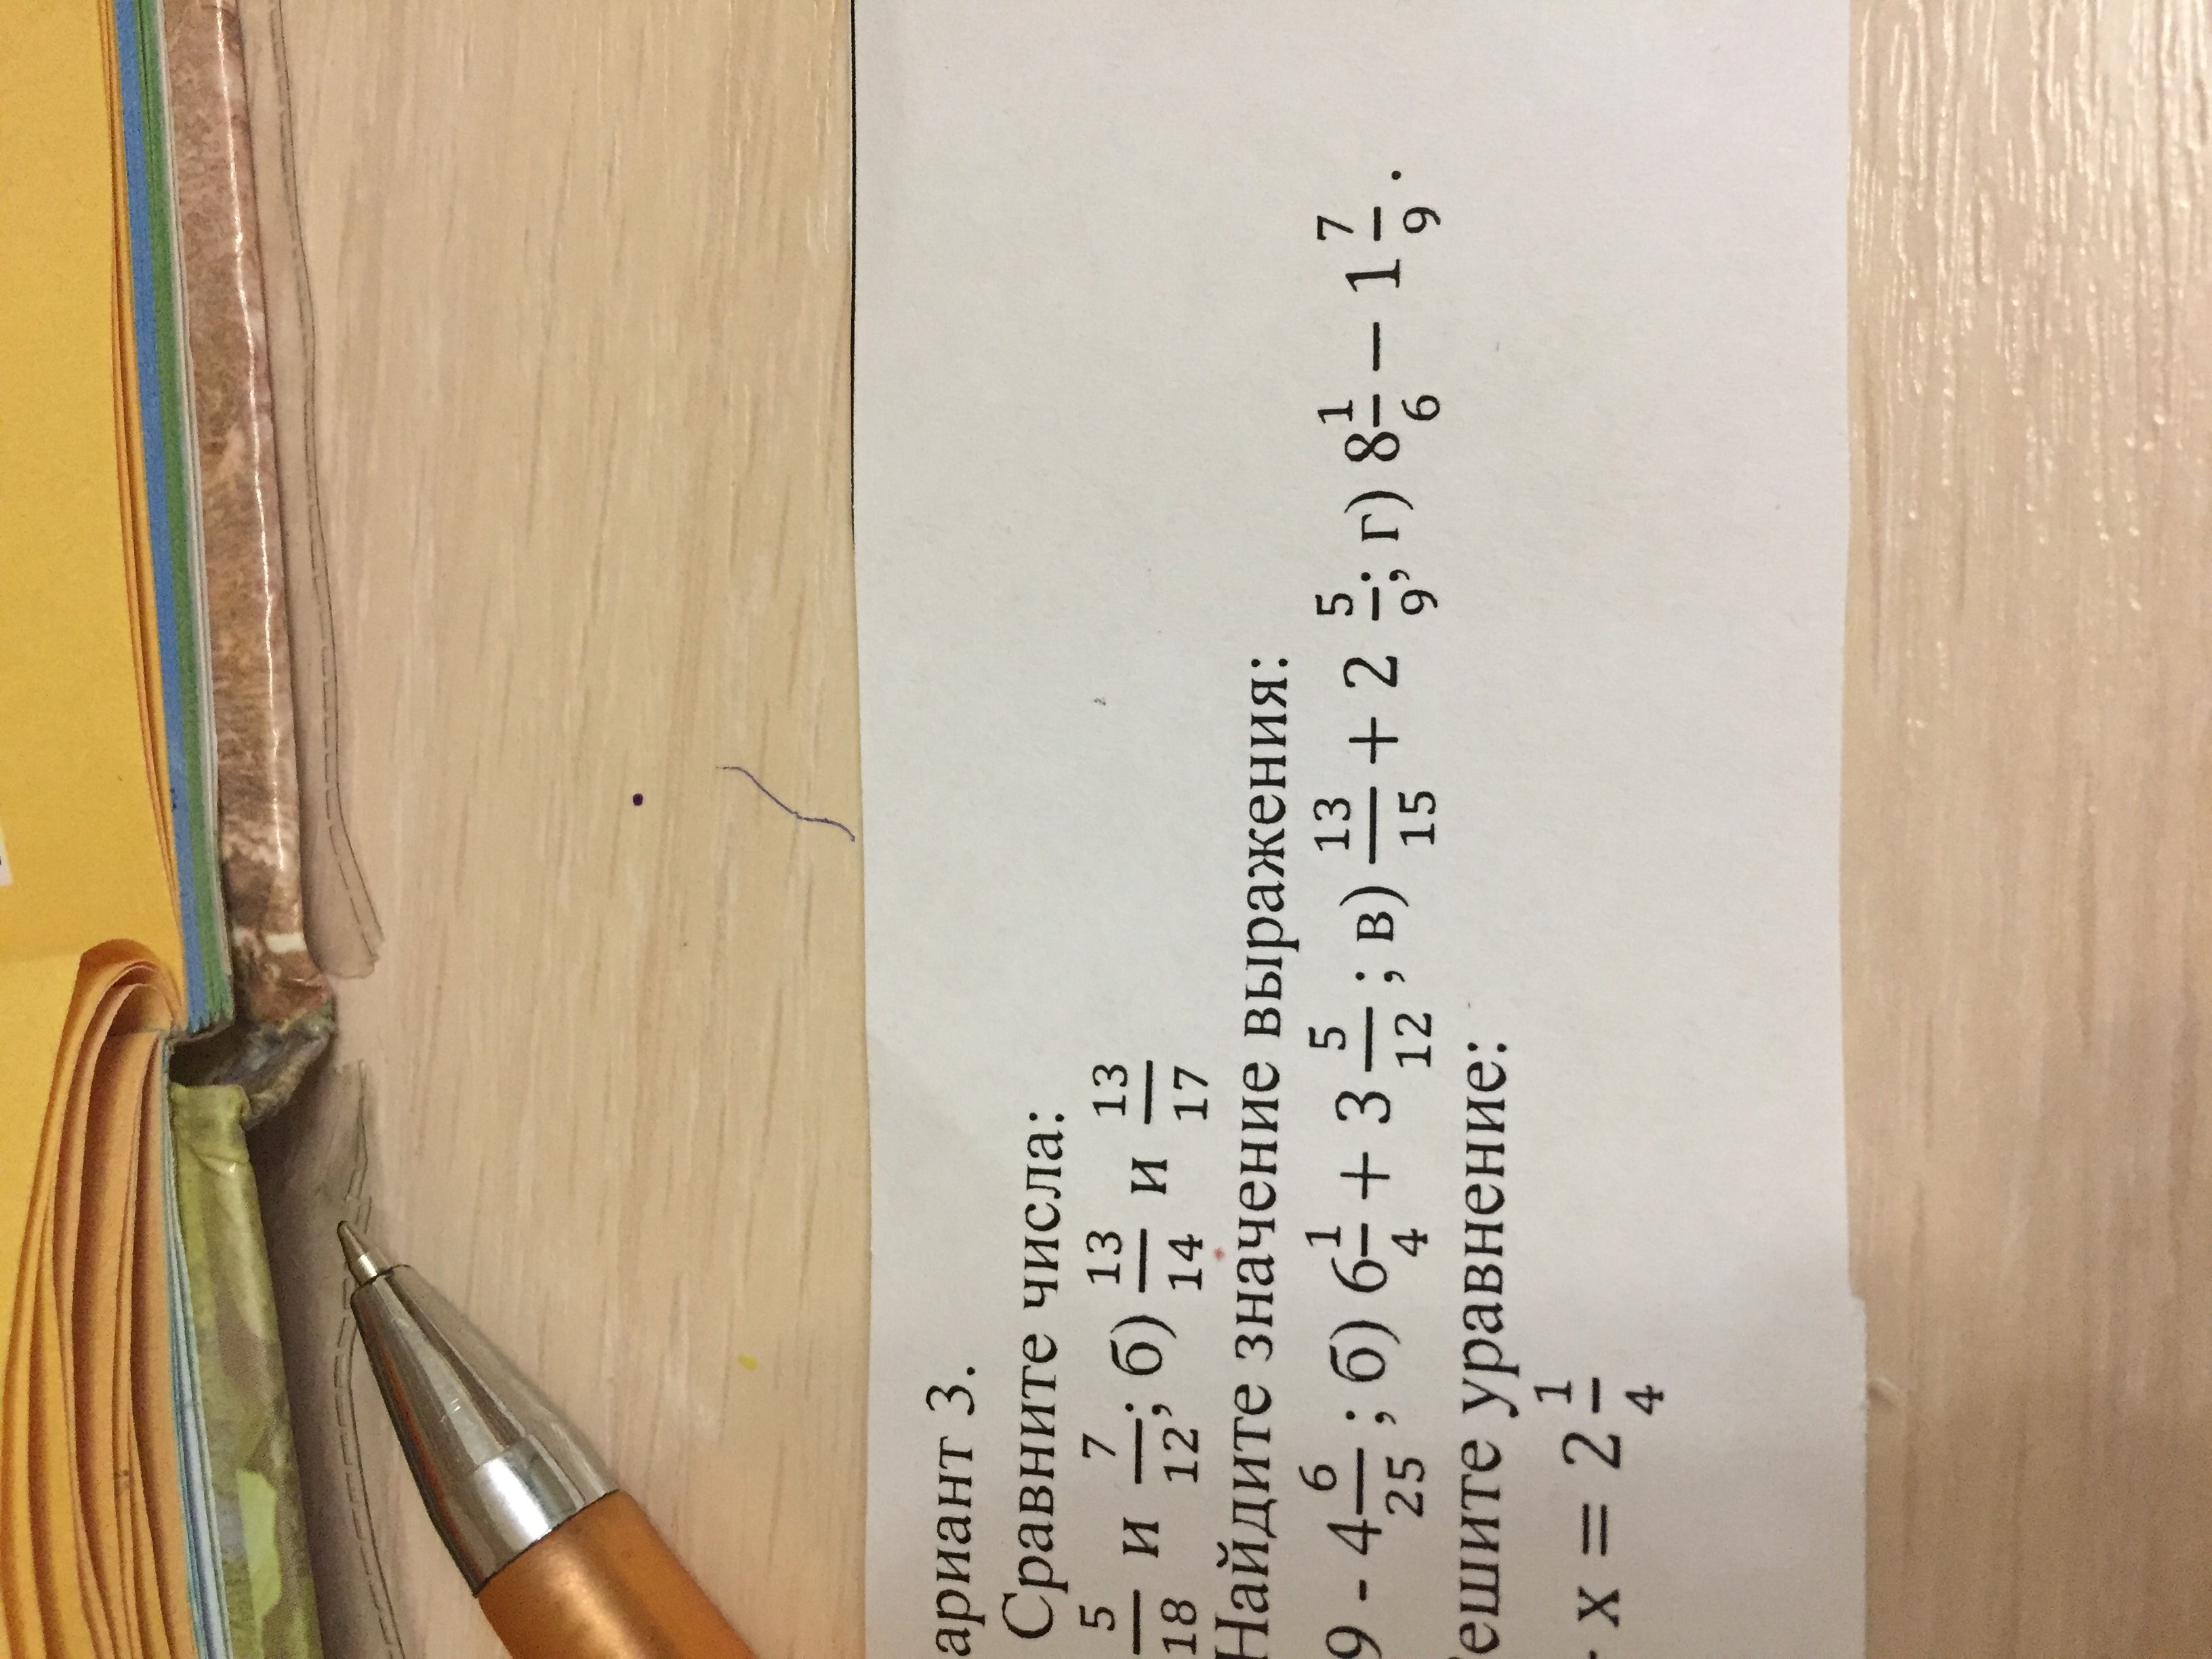 ариант 3.
Сравните числа:
5/18 и 7/12; б) 13/14 и 13/17
Найдите значение выражения:
9 - 4 6/25 ; б) 6 1/4 + 3 5/12 ; в) 13/15 + 2 5/9; г) 8 1/6 − 1 7/9.
ешите уравнение:
x = 2 1/4